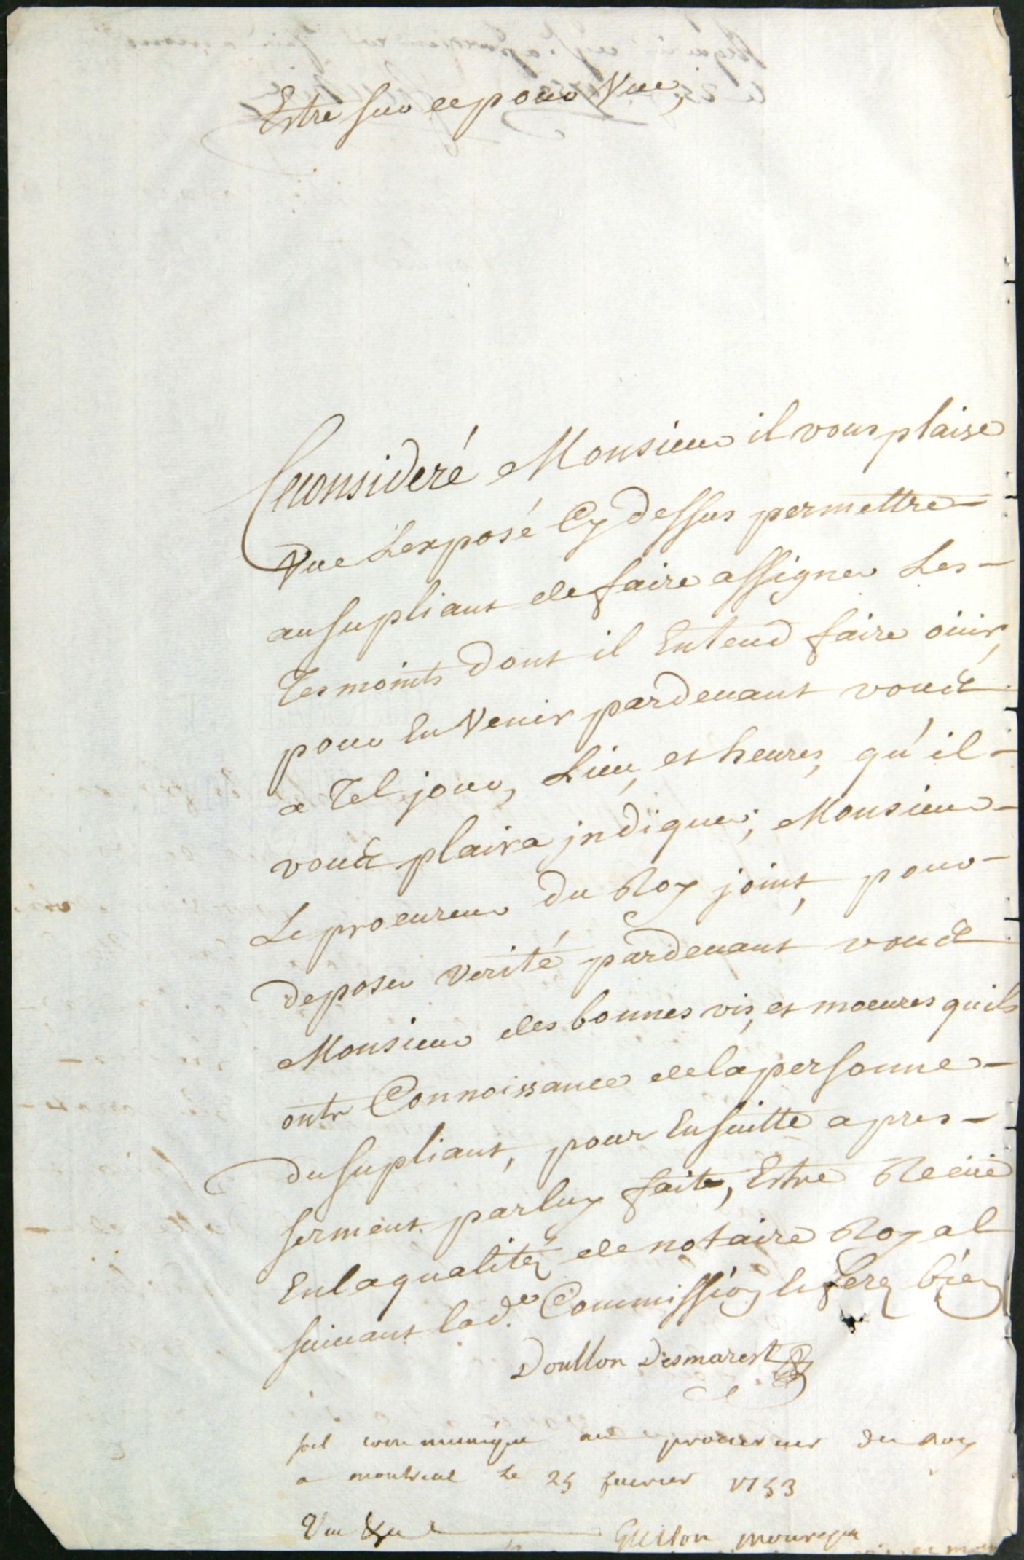 Estre sur ce pourvu,
Ce considéré Monsieur il vous plaise
Vue L'exposé Cy dessus permettre
au supliant de faire assigner Les
Tesmoints dont il Entend faire oüir,
pour En Venir pardevant vous
a Tel jour, Lieu, et heures, qu'il
vous plaira jndiquer, Monsieur
Le procureur du Roy joint, pour
deposer verité pardevant vous
Monsieur des bonnes vis, et moeures quils
onts Connoissance de la personne
du supliant, pour Ensuitte apres
serment par luy fait, Estre Receüe
En la qualité de notaire Royal
suivant lad.e Commission Et ferez bien
Doullon Desmarest
soit communiqué au procureur du Roy
a montreal Le 25 fuvrier 1753
Guiton monrepos